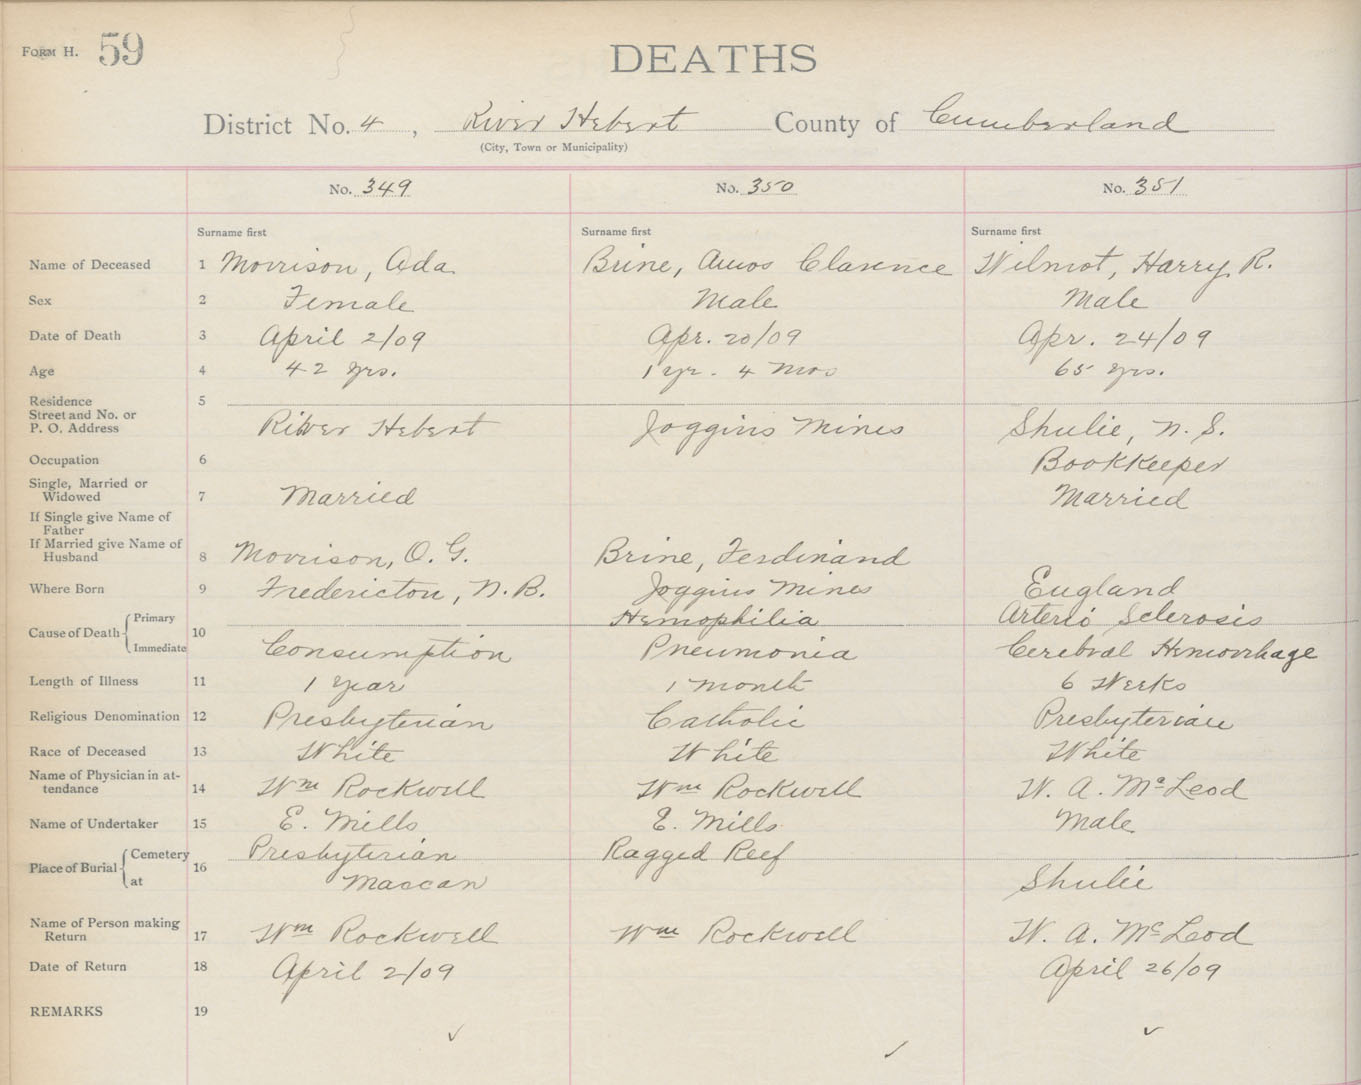 FORM H. 59
DEATHS
District No. 4, River Hebert County of Cumberland
(City, Town or Municipality)
No. 349 No. 350 No. 351
Surname first Surname first Surname first
Name of Deceased 1 Morrison, Ada Brine, Amos Clarence Wilmot, Harry R.
Sex 2 Female Male Male
Date of Death 3 April 2/09 Apr. 20/09 Apr. 24/09
Age 4 42 yrs. 1 yr. 4 mos 65 yrs.
Residence 5
Street and No. or
P. O. Address River Hebert Joggins Mines Shulie, N. S.
Occupation 6 Bookkeeper
Single, Married or
Widowed 7 Married Married
If Single give Name of
Father
If Married give Name of
Husband 8 Morrison, O. G. Brine, Ferdinand
Where Born 9 Fredericton, N. B. Joggins Mines England
Cause of Death 10 Primary Hemophilia Arterio Sclerosis
Immediate Consumption Pneumonia Cerebral Hemorrhage
Length of Illness 11 1 year 1 month 6 Weeks
Religious Denomination 12 Presbyterian Catholic Presbyterian
Race of Deceased 13 White White White
Name of Physician in at-
tendance 14 Wm Rockwell Wm Rockwell W. A. McLeod
Name of Undertaker 15 E. Mills E. Mills Male
Place of Burial 16 Cemetery Presbyterian Ragged Reef
at Maccan Shulie
Name of Person making
Return 17 Wm Rockwell Wm Rockwell W. A. McLeod
Date of Return 18 April 2/09 April 26/09
REMARKS 19